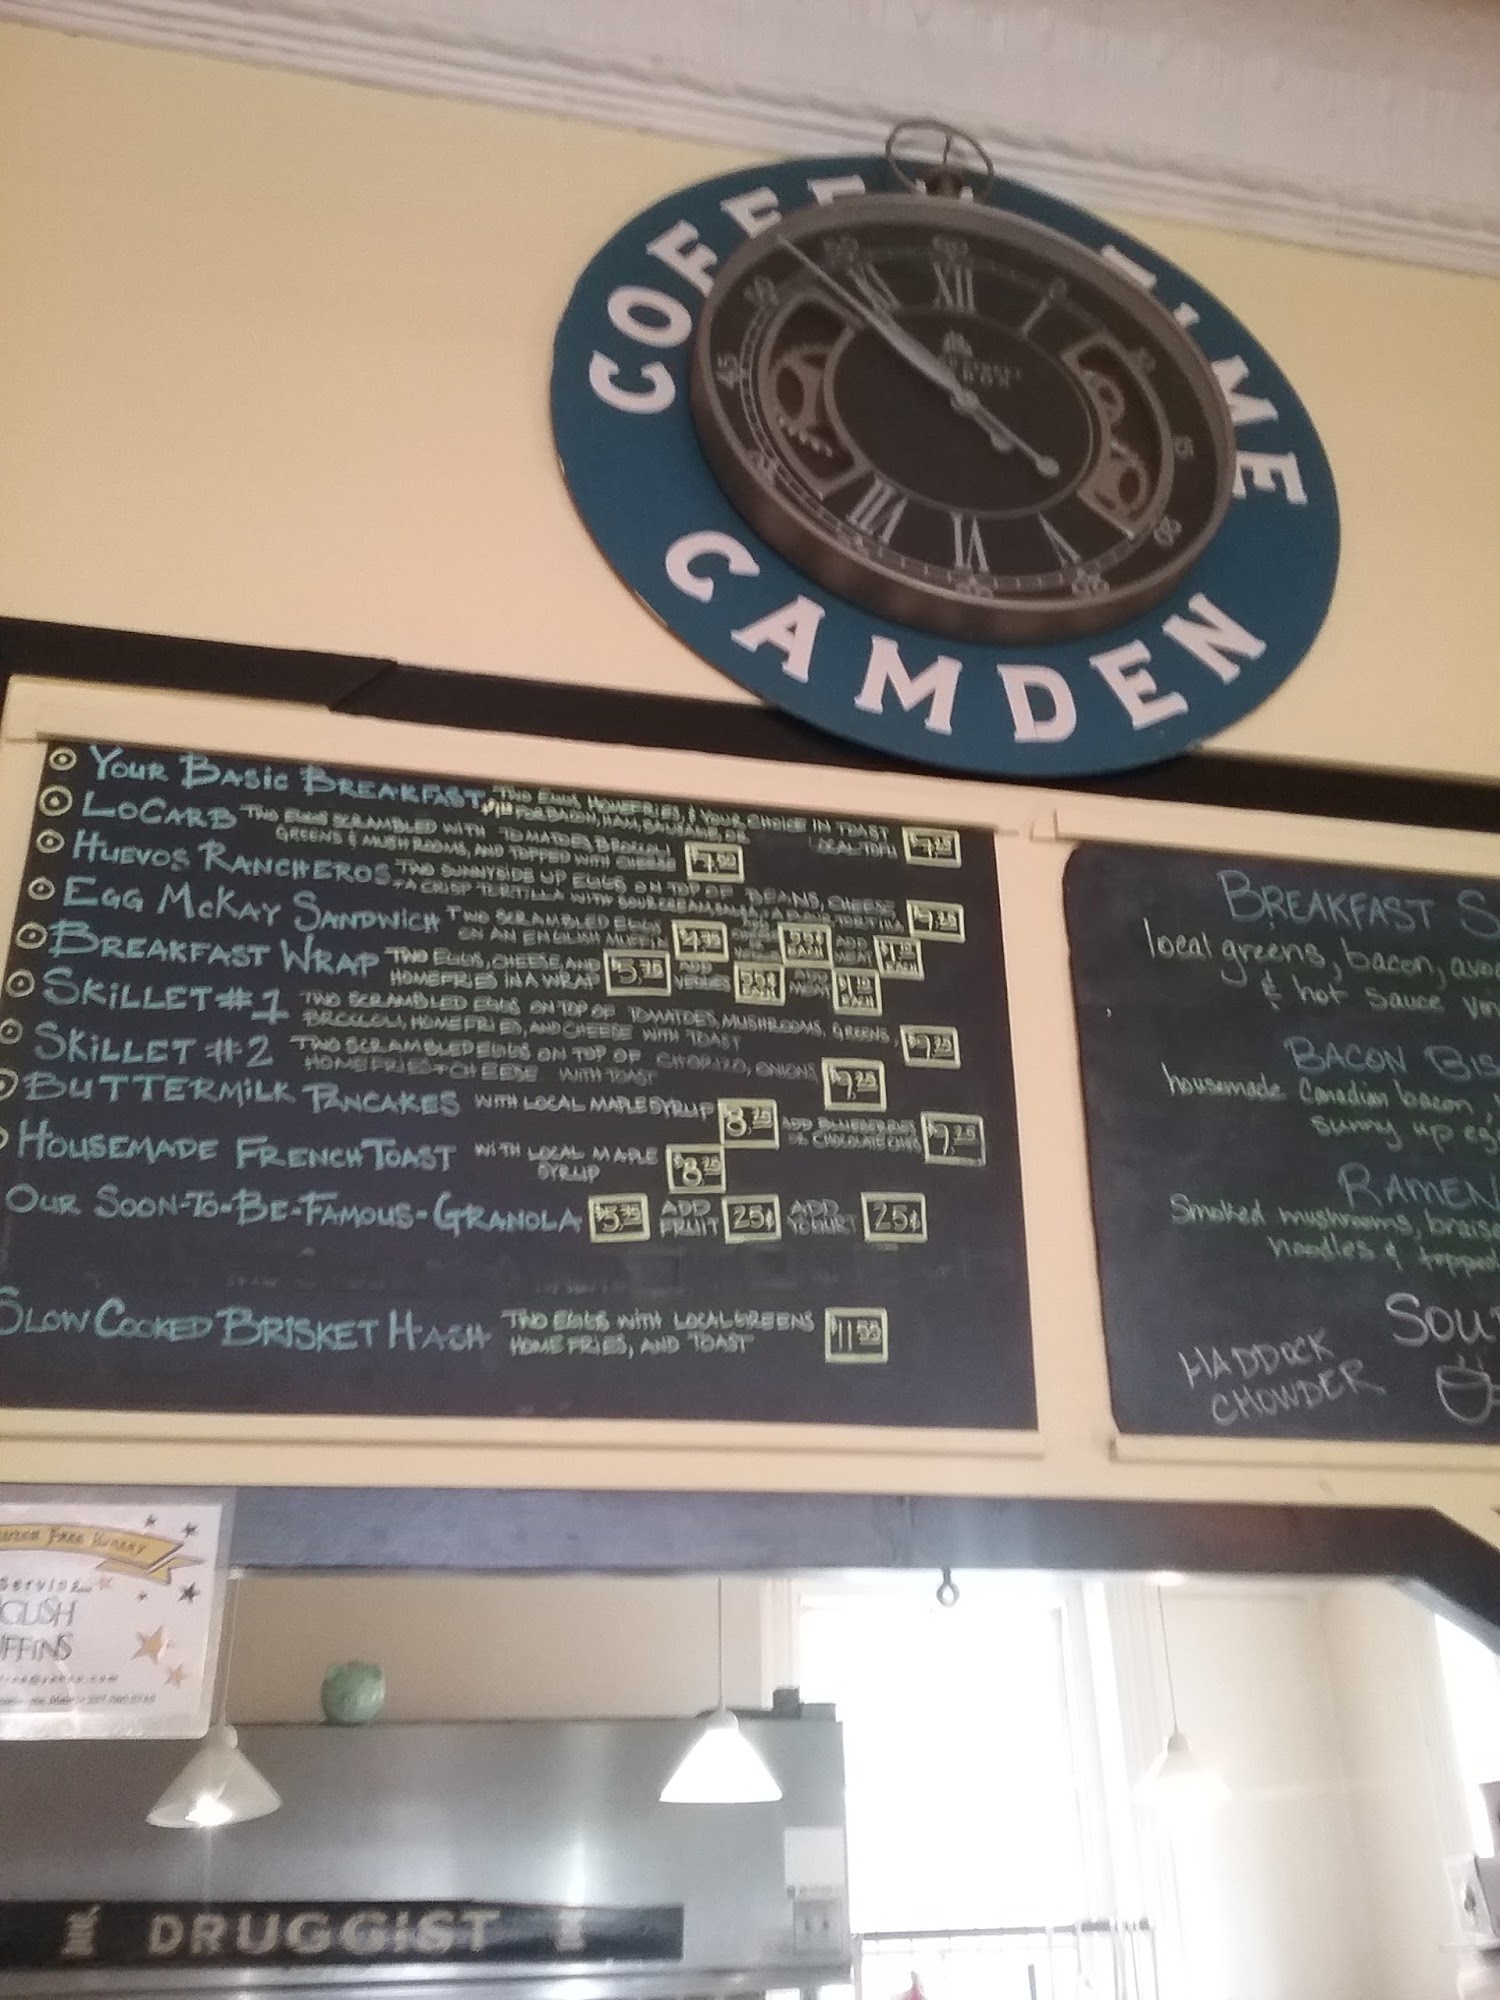 COFFEE TIME
CAMDEN
XII
YOUR BASIC BREAKFAST TWO EGGS, HOMEFRIES, & YOUR CHOICE IN TOAST
FOR BACON, HAM, SAUSAGE, OR LOCAL TOFU $7.25
LOCARB TWO EGGS SCRAMBLED WITH TOMATOES, BROCCOLI
GREENS & MUSHROOMS, AND TOPPED WITH CHEESE $7.50
HUEVOS RANCHEROS TWO SUNNYSIDE UP EGGS ON TOP OF BEANS, CHEESE
+ A CRISP TORTILLA WITH SOUR CREAM, SALSA, + A FLOUR TORTILLA $9.25
EGG MCKAY SANDWICH TWO SCRAMBLED EGGS
ON AN ENGLISH MUFFIN ADD MEAT EACH
BREAKFAST WRAP TWO EGGS, CHEESE, AND
HOMEFRIES IN A WRAP $5.75 ADD VEGGIES 55¢ EACH ADD MEAT EACH
SKILLET #1 TWO SCRAMBLED EGGS ON TOP OF TOMATOES, MUSHROOMS, GREENS,
BROCCOLI, HOMEFRIES, AND CHEESE WITH TOAST $9.25
SKILLET #2 TWO SCRAMBLED EGGS ON TOP OF CHORIZO, ONIONS
HOMEFRIES + CHEESE WITH TOAST $9.25
BUTTERMILK PANCAKES WITH LOCAL MAPLE SYRUP $8.25 ADD BLUEBERRIES
OR CHOCOLATE CHIPS $9.25
HOUSEMADE FRENCH TOAST WITH LOCAL MAPLE
SYRUP $8.25
OUR SOON-TO-BE-FAMOUS-GRANOLA $5.35 ADD FRUIT 25¢ ADD YOGURT 25¢
SLOW COOKED BRISKET HASH TWO EGGS WITH LOCAL GREENS
HOME FRIES, AND TOAST $11.55
BREAKFAST S
local greens, bacon, avoc
& hot sauce
BACON BIS
housemade Canadian bacon,
sunny up egg
RAMEN
Smoked mushrooms, braise
noodles & topped
SOU
HADDOCK
CHOWDER
Free
Serving
GLISH
FFINS
DRUGGIST